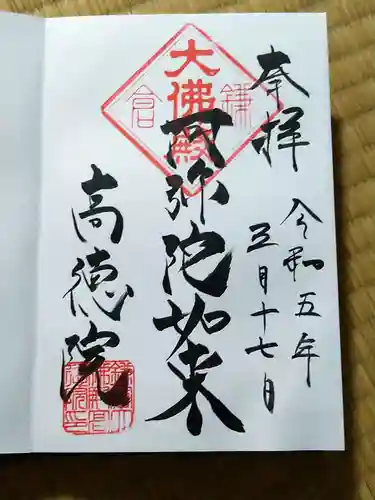 奉拝
令和五年
五月十七日
大佛殿
鎌倉
阿弥陀如来
高徳院